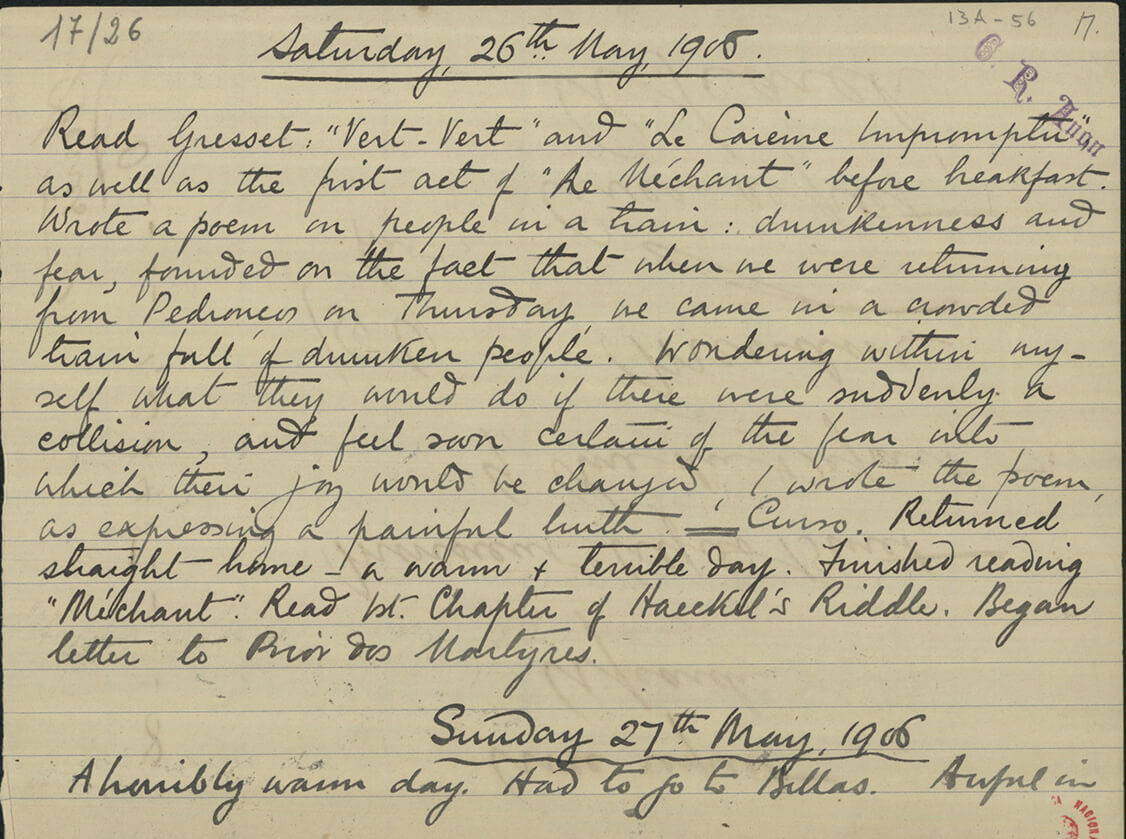 17/26
13A-56
17.
C. R. Anon
Saturday, 26th. May, 1906.
Read Gresset: "Vert-Vert" and "Le Carême Impromptu",
as well as the first act of "Le Méchant" before breakfast.
Wrote a poem on people in a train: drunkenness and
fear, founded on the fact that when we were returning
from Pedrouços on Thursday, we came in a crowded
train full of drunken people. Wondering within my-
self what they would do if there were suddenly a
collision, and feel soon certain of the fear into
which their joy would be changed, I wrote the poem,
as expressing a painful truth. = Curso. Returned
straight home - a warm & terrible day. Finished reading
"Méchant". Read 1st. Chapter of Haeckel's Riddle. Began
letter to Prior dos Martyres.
Sunday 27th May, 1906
A horribly warm day. Had to go to Billas. Awful in
NACIONA